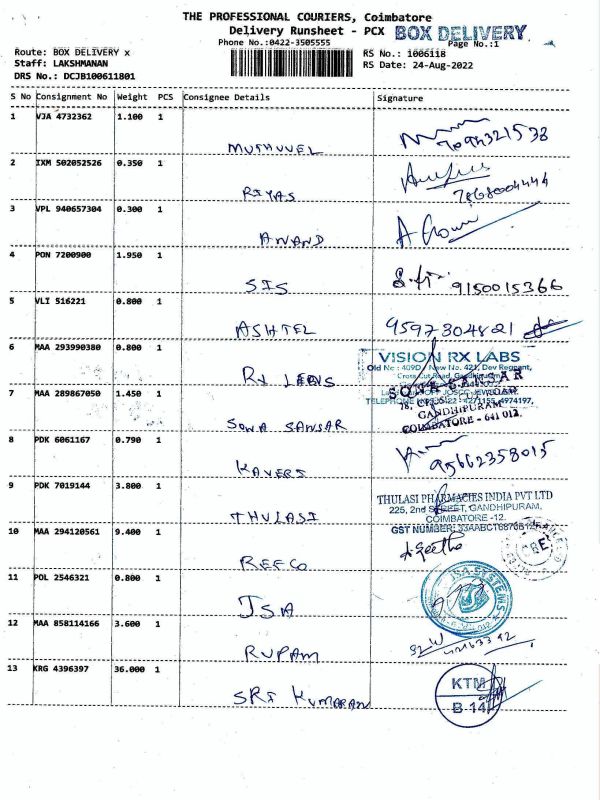 THE PROFESSIONAL COURIERS, Coimbatore
Delivery Runsheet - PCX BOX DELIVERY
Phone No.:0422-3505555 Page No.:1
Route: BOX DELIVERY x RS No.: 1006118
Staff: LAKSHMANAN RS Date: 24-Aug-2022
DRS No.: DCJB100611801
S No Consignment No Weight PCS Consignee Details Signature
1 VJA 4732362 1.100 1
MUTHUVEL 7094321538
2 IXM 502052526 0.350 1
RIYAS 7868004444
3 VPL 940657304 0.300 1
ANAND
4 PON 7200900 1.950 1
SIS 9150015366
5 VLI 516221 0.800 1
ASHTEL 9597304821
6 MAA 293990380 0.800 1
VISION RX LABS
Old No : 409D, New No. 421, Dev Regent,
Cross Cut Road, Gandhipuram,
RX LENS
7 MAA 289867050 1.450 1
SONA SANSAR
TELEPHONE
GANDHIPURAM
COIMBATORE - 641 012.
SONA SANSAR
8 PDK 6061167 0.790 1
KAVERI 95662358015
9 PDK 7019144 3.800 1
THULASI PHARMACIES INDIA PVT LTD
225, 2nd STREET, GANDHIPURAM,
COIMBATORE -12.
GST NUMBER:
THULASI
10 MAA 294120561 9.400 1
REFCO
11 POL 2546321 0.800 1
JSA SYSTEMS
JSA
12 MAA 858114166 3.600 1
RUPAM
13 KRG 4396397 36.000 1
KTM
B-14
SRI KUMARAN